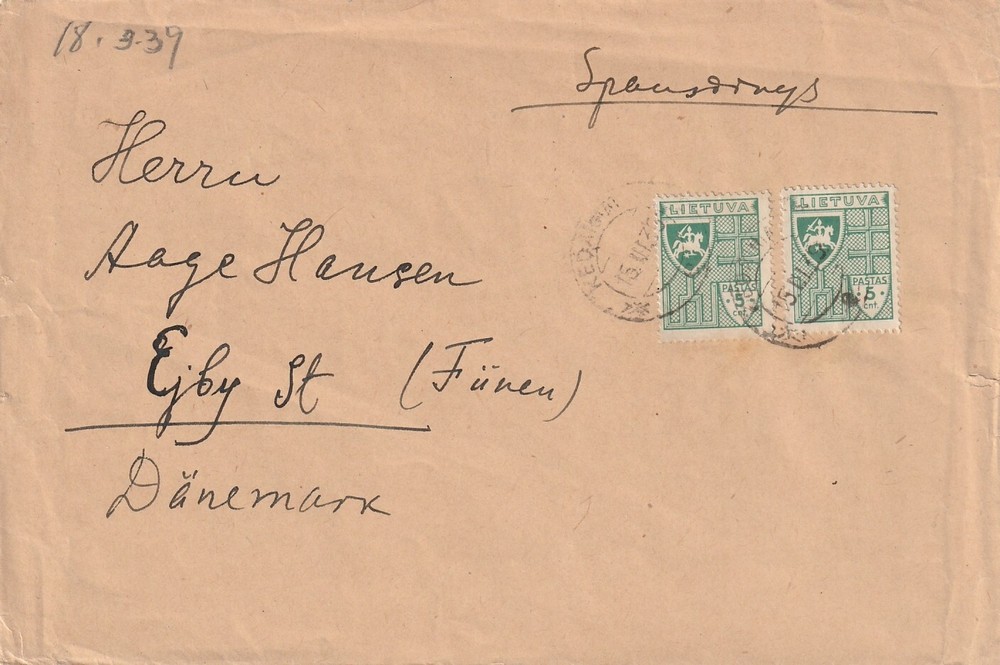 18.3.39
Spausdinys
Herrn
Aage Hansen
Ejby St (Fünen)
Dänemark
LIETUVA
PAŠTAS
5
cnt.
LIETUVA
PAŠTAS
5
cnt.